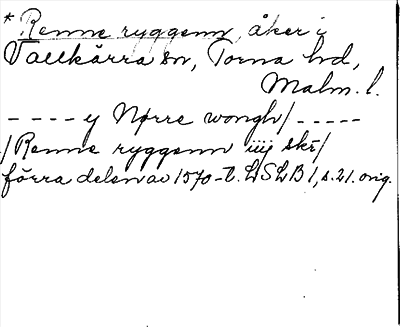 * Renne ryggenn, åker i
Vallkärra sn, Torna hd,
Malm. l.
- - - - y Nørre wongh/ - - - - -
/Renne ryggenn iiij skr/
förra delen av 1570-t. LSLB 1, s. 21. orig.